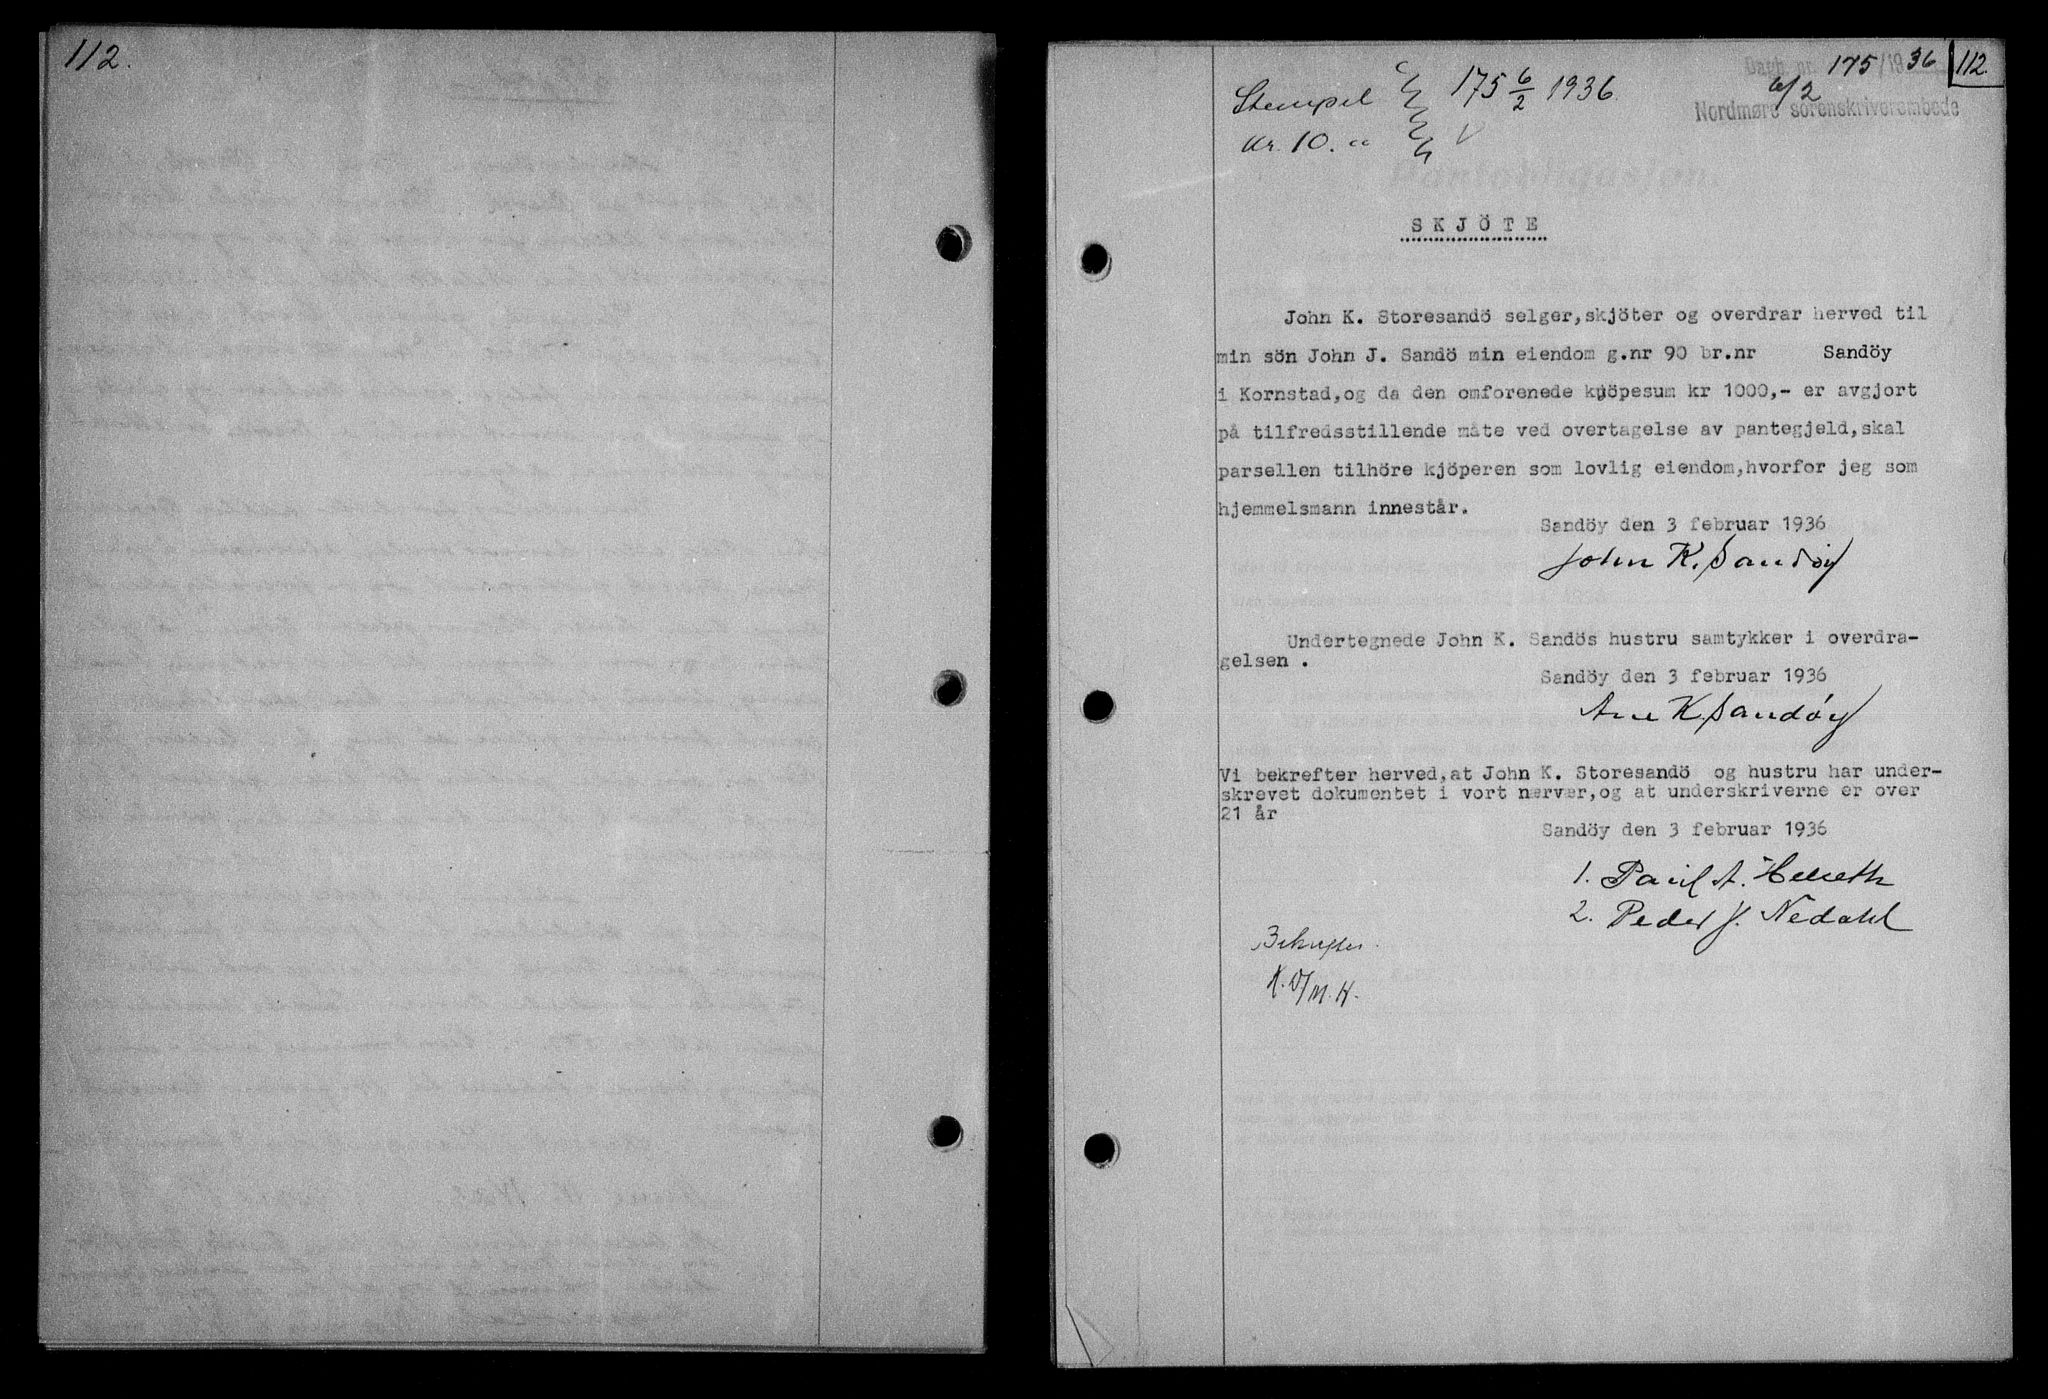 112.
Dagb. nr. 175/1936 112.
6/2
Nordmøre sorenskriverembede
Stempel 175 6/2 1936
Kr. 10.
SKJÖTE
John K. Storesandö selger,skjöter og overdrar herved til
min sön John J. Sandö min eiendom g.nr 90 br.nr Sandöy
i Kornstad,og da den omforenede kjöpesum kr 1000,- er avgjort
på tilfredsstillende måte ved overtagelse av pantegjeld,skal
parsellen tilhöre kjöperen som lovlig eiendom,hvorfor jeg som
hjemmelsmann innestår.
Sandöy den 3 februar 1936
John K. Sandöy
Undertegnede John K. Sandös hustru samtykker i overdra-
gelsen .
Sandöy den 3 februar 1936
Ane K. Sandøy
Vi bekrefter herved,at John K. Storesandö og hustru har under-
skrevet dokumentet i vort nærvær,og at underskriverne er over
21 år
Sandöy den 3 februar 1936
1. Paul A. Helseth
2. Peder J. Nedahl
Bekreftes.